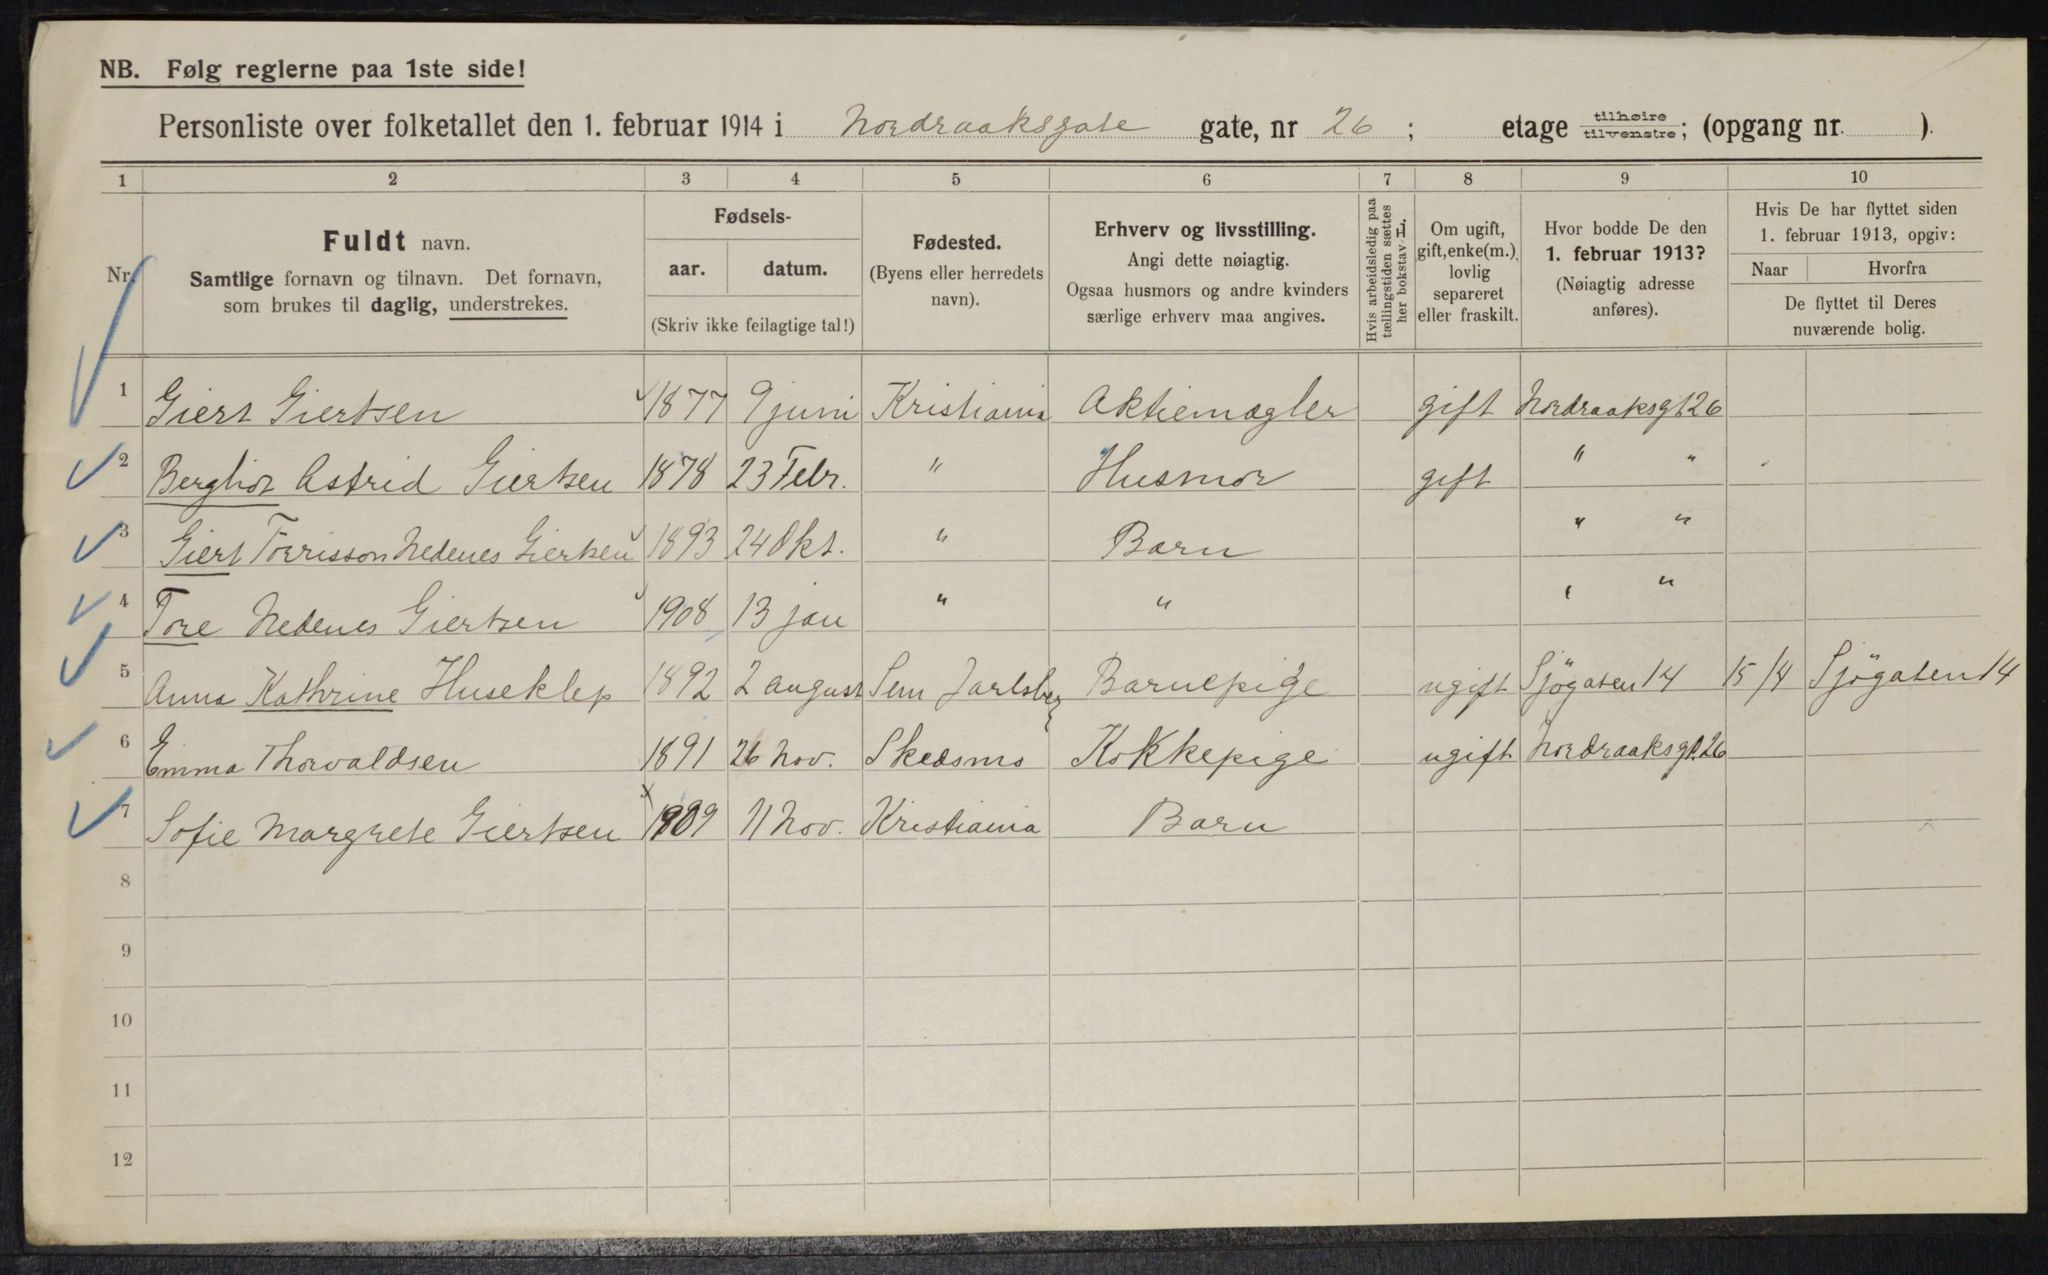 NB. Følg reglerne paa 1ste side!
Personliste over folketallet den 1. februar 1914 i Nordraaksgate gate, nr 26 ; etage tilhøire tilvenstre; (opgang nr. ).
1 2 3 4 5 6 7 8 9 10
Nr. Fuldt navn. Samtlige fornavn og tilnavn. Det fornavn, som brukes til daglig, understrekes.
Fødsels- aar. datum. (Skriv ikke feilagtige tal!)
Fødested. (Byens eller herredets navn).
Erhverv og livsstilling. Angi dette nøiagtig. Ogsaa husmors og andre kvinders særlige erhverv maa angives.
Hvis arbeidsledig paa tællingstiden sættes her bokstav L.
Om ugift, gift, enke(m.), lovlig separeret eller fraskilt.
Hvor bodde De den 1. februar 1913? (Nøiagtig adresse anføres).
Hvis De har flyttet siden 1. februar 1913, opgiv: Naar Hvorfra De flyttet til Deres nuværende bolig.
1 Giert Giertsen 1877 9 juni Kristiania Aktiemægler gift Nordraaksgt 26
2 Bergliot Astrid Giertsen 1878 23 Febr. " Husmor gift " "
3 Giert Torrisson Nedenes Giertsen 1893 24 Okt. " Barn " "
4 Tore Nedenes Giertsen 1908 13 jan " " " "
5 Anna Kathrine Huseklep 1892 2 august Sem Jarlsberg Barnepige ugift Sjøgaten 14 15/4 Sjøgaten 14
6 Emma Thorvaldsen 1891 26 Nov. Skedsmo Kokkepige ugift Nordraaksgt. 26
7 Sofie Margrete Giertsen 1909 11 Nov. Kristiania Barn
8
9
10
11
12